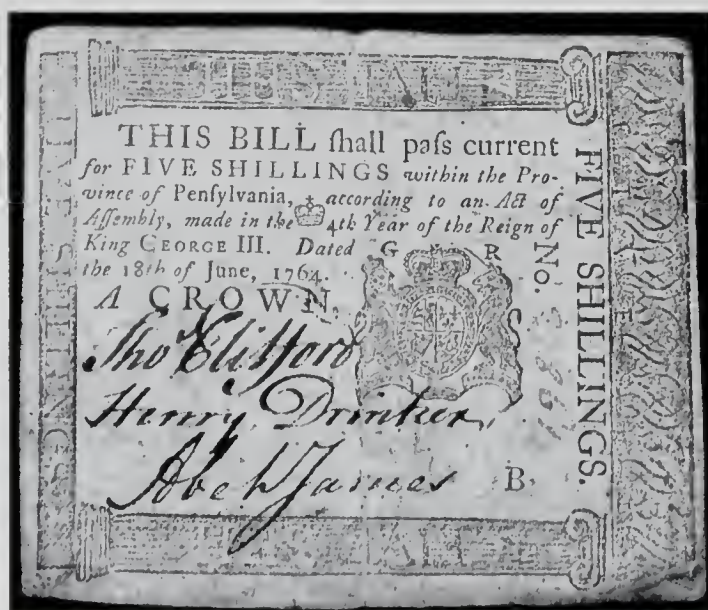 THIS BILL ſhall paſs current
for FIVE SHILLINGS within the Pro-
vince of Penſylvania, according to an Act of
Aſſembly, made in the 4th Year of the Reign of
King GEORGE III. Dated
the 18th of June, 1764.
G R
A CROWN.
Tho Clifford
Henry Drinker
Abel James
B.
No.
FIVE SHILLINGS.